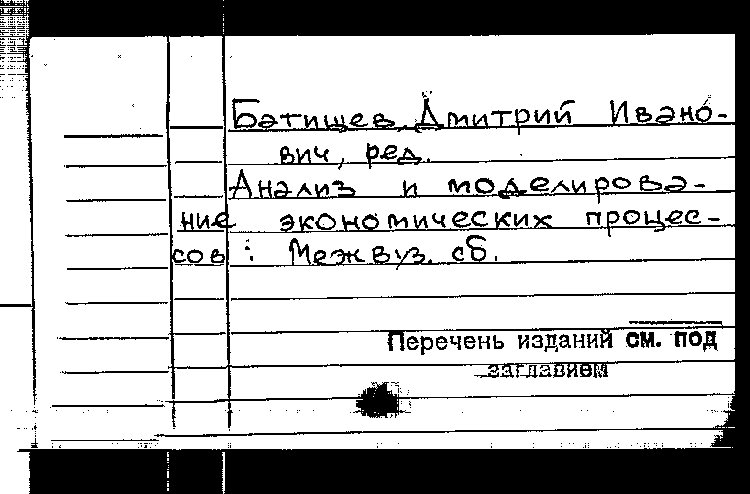 Батищев, Дмитрий Ивано-
вич, ред.
Анализ и моделирова-
ние экономических процес-
сов : Межвуз. сб.
Перечень изданий см. под
заглавием